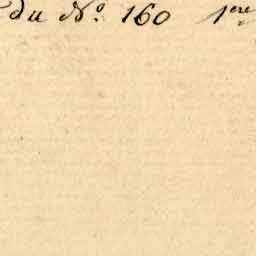 du N.o 160 1ere